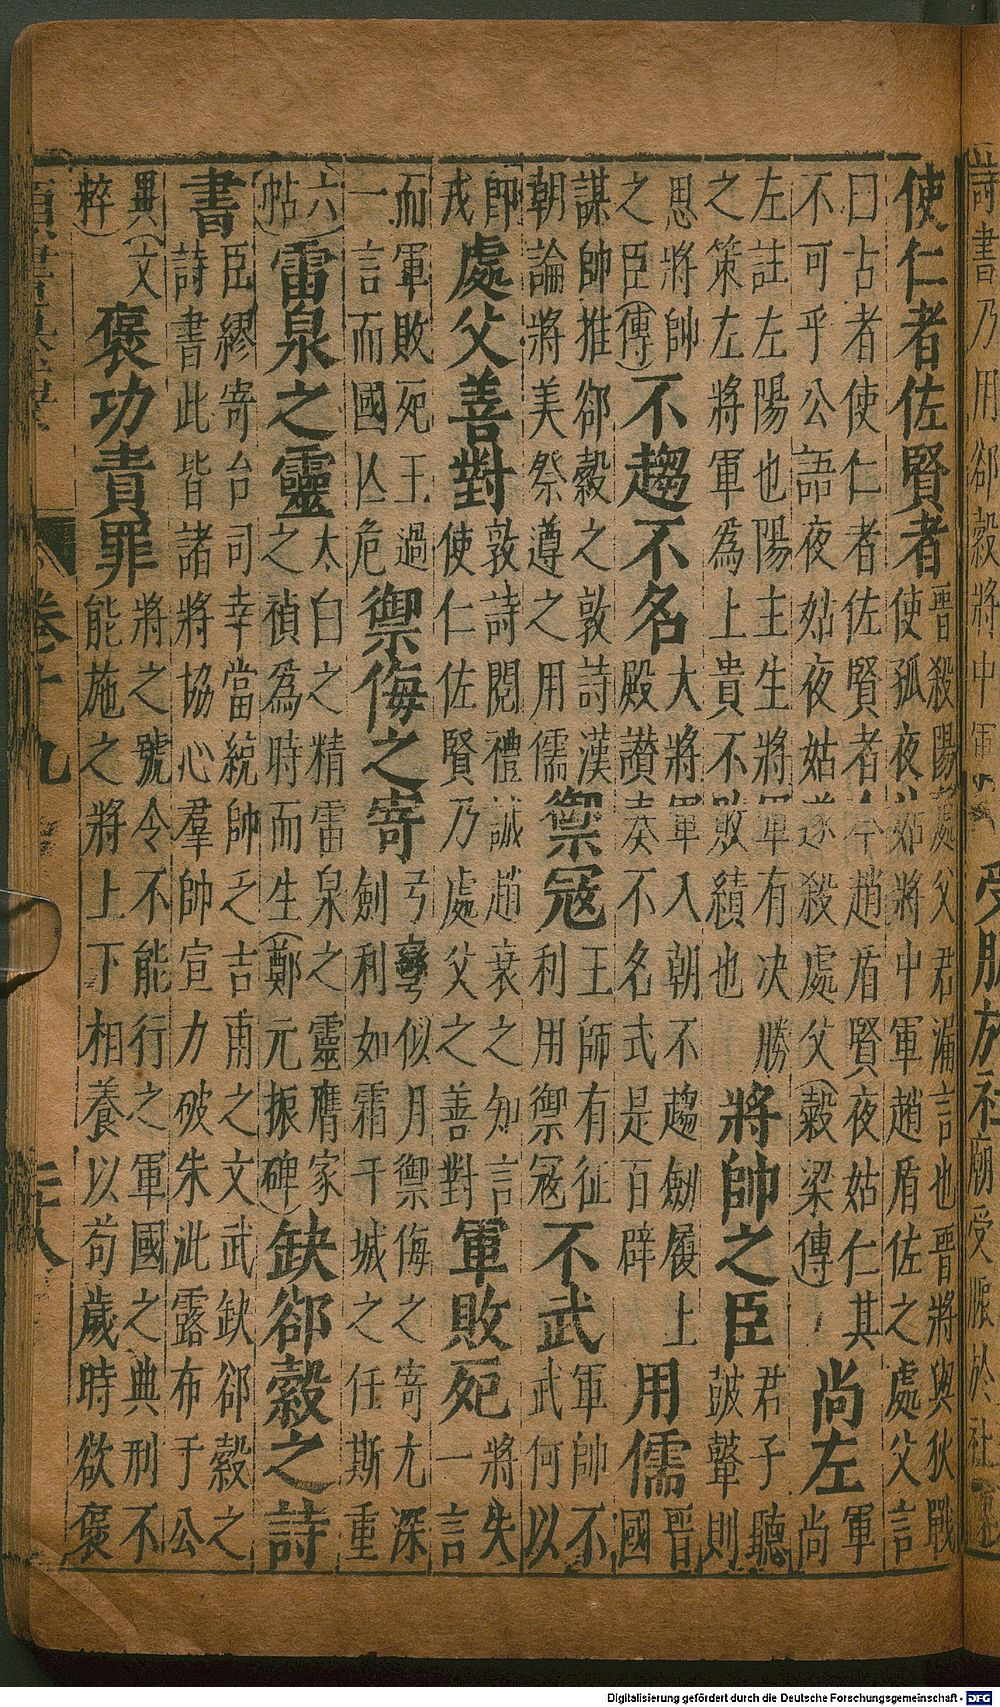 詩書乃用郤縠將中軍
受脤於社 廟受脤於社
使仁者佐賢者
晉殺陽處父君漏言也晉將與狄戰
使狐夜姑將中軍趙盾佐之處父言
曰古者使仁者佐賢者今趙盾賢夜姑仁其
不可乎公語夜姑夜姑遂殺處父(穀梁傳)
尚左
軍
尚
左註左陽也陽主生將軍有决勝
之策左將軍為上貴不敗績也
將帥之臣
君子聽
鼓鼙則
思將帥
之臣(傳)
不趨不名
大將軍入朝不趨劍履上
殿讃奏不名式是百辟
用儒
晉
國
謀帥推郤縠之敦詩漢
朝論將美祭遵之用儒
禦冦
王師有征
利用禦冦
不武
軍帥不
武何以
師
戎
處父善對
敦詩閱禮誠趙衰之知言
使仁佐賢乃處父之善對
軍敗死
將失
一言
而軍敗死王過
一言而國以危
禦侮之寄
弓彎似月禦侮之寄尤深
劍利如霜干城之任斯重
六
帖)
雷泉之靈
太白之精雷泉之靈膺家
之禎為時而生(鄭元振碑)
缺郤縠之詩
書
臣繆寄台司幸當統帥乏吉甫之文武缺郤縠之
詩書此皆諸將協心羣帥宣力破朱泚露布于公
異(文
粹)
褒功責罪
將之號令不能行之軍國之典刑不
能施之將上下相養以苟歲時欲褒
卷十九
Digitalisierung gefördert durch die Deutsche Forschungsgemeinschaft - DFG